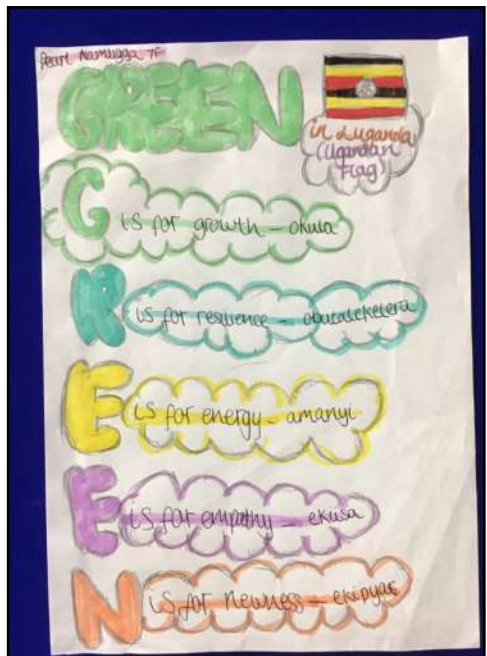 Pearl Namugga 7F
GREEN
in Luganda
(Ugandan
Flag)
G is for growth – okula
R is for resilience – obucalekelera
E is for energy – amanyi
E is for empathy – ekusa
N is for newness –